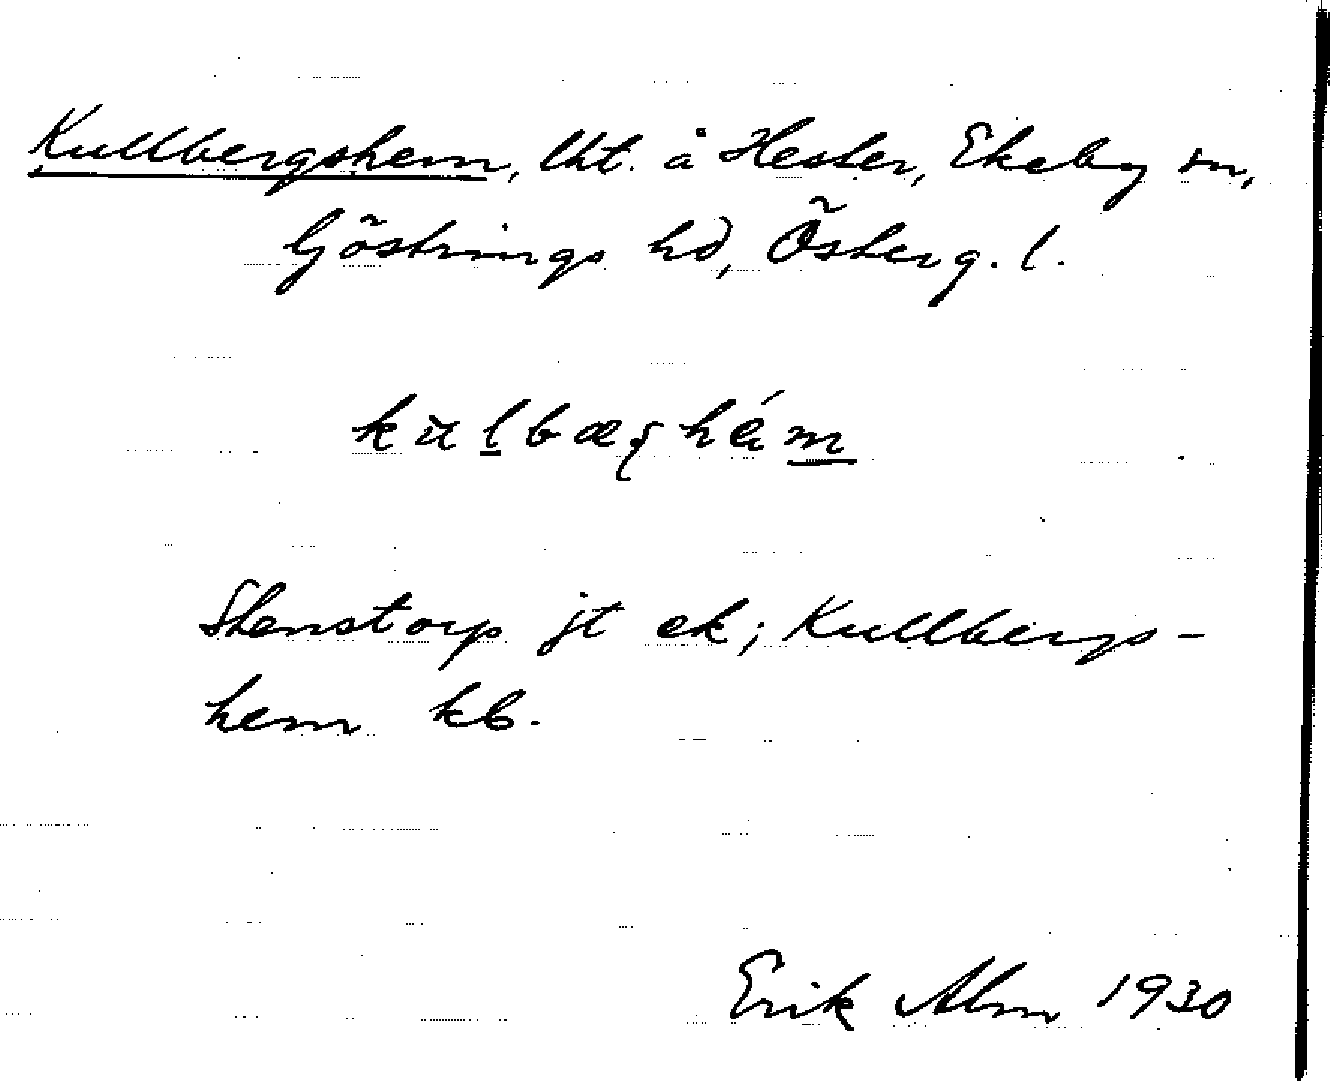 Kullbergshem, lht. å Hester, Ekeby sn,
Göstrings hd, Österg. l.
kulbæṣhém
Stenstorp jt ek; Kullbergs-
hem kb.
Erik Alm 1930